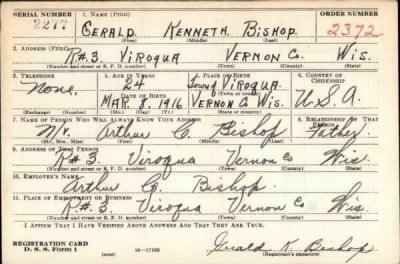 SERIAL NUMBER 1. NAME (Print) ORDER NUMBER
2277 GERALD. KENNETH. BISHOP. 2372
(First) (Middle) (Last)
2. ADDRESS (Print)
R#3 VIROQUA VERNON Co. WIS.
(Number and street or R. F. D. number) (Town) (County) (State)
3. TELEPHONE 4. AGE IN YEARS 5. PLACE OF BIRTH 6. COUNTRY OF CITIZENSHIP
None. 24 Town of VIROQUA
DATE OF BIRTH (Town or county)
MAR. 8. 1916 VERNON Co WIS. U.S.A.
(Exchange) (Number) (Mo.) (Day) (Yr.) (State or country)
7. NAME OF PERSON WHO WILL ALWAYS KNOW YOUR ADDRESS 8. RELATIONSHIP OF THAT PERSON
Mr. Arthur C. Bishop Father.
(Mr., Mrs., Miss) (First) (Middle) (Last)
9. ADDRESS OF THAT PERSON
R#3. Viroqua Vernon Co Wis
(Number and street or R. F. D. number) (Town) (County) (State)
10. EMPLOYER'S NAME
Arthur C. Bishop.
11. PLACE OF EMPLOYMENT OR BUSINESS
R#3. Viroqua Vernon Co Wis
(Number and street or R. F. D. number) (Town) (County) (State)
I AFFIRM THAT I HAVE VERIFIED ABOVE ANSWERS AND THAT THEY ARE TRUE.
REGISTRATION CARD
D. S. S. Form 1 (over) 16—17105 Gerald K. Bishop
(Registrant's signature)